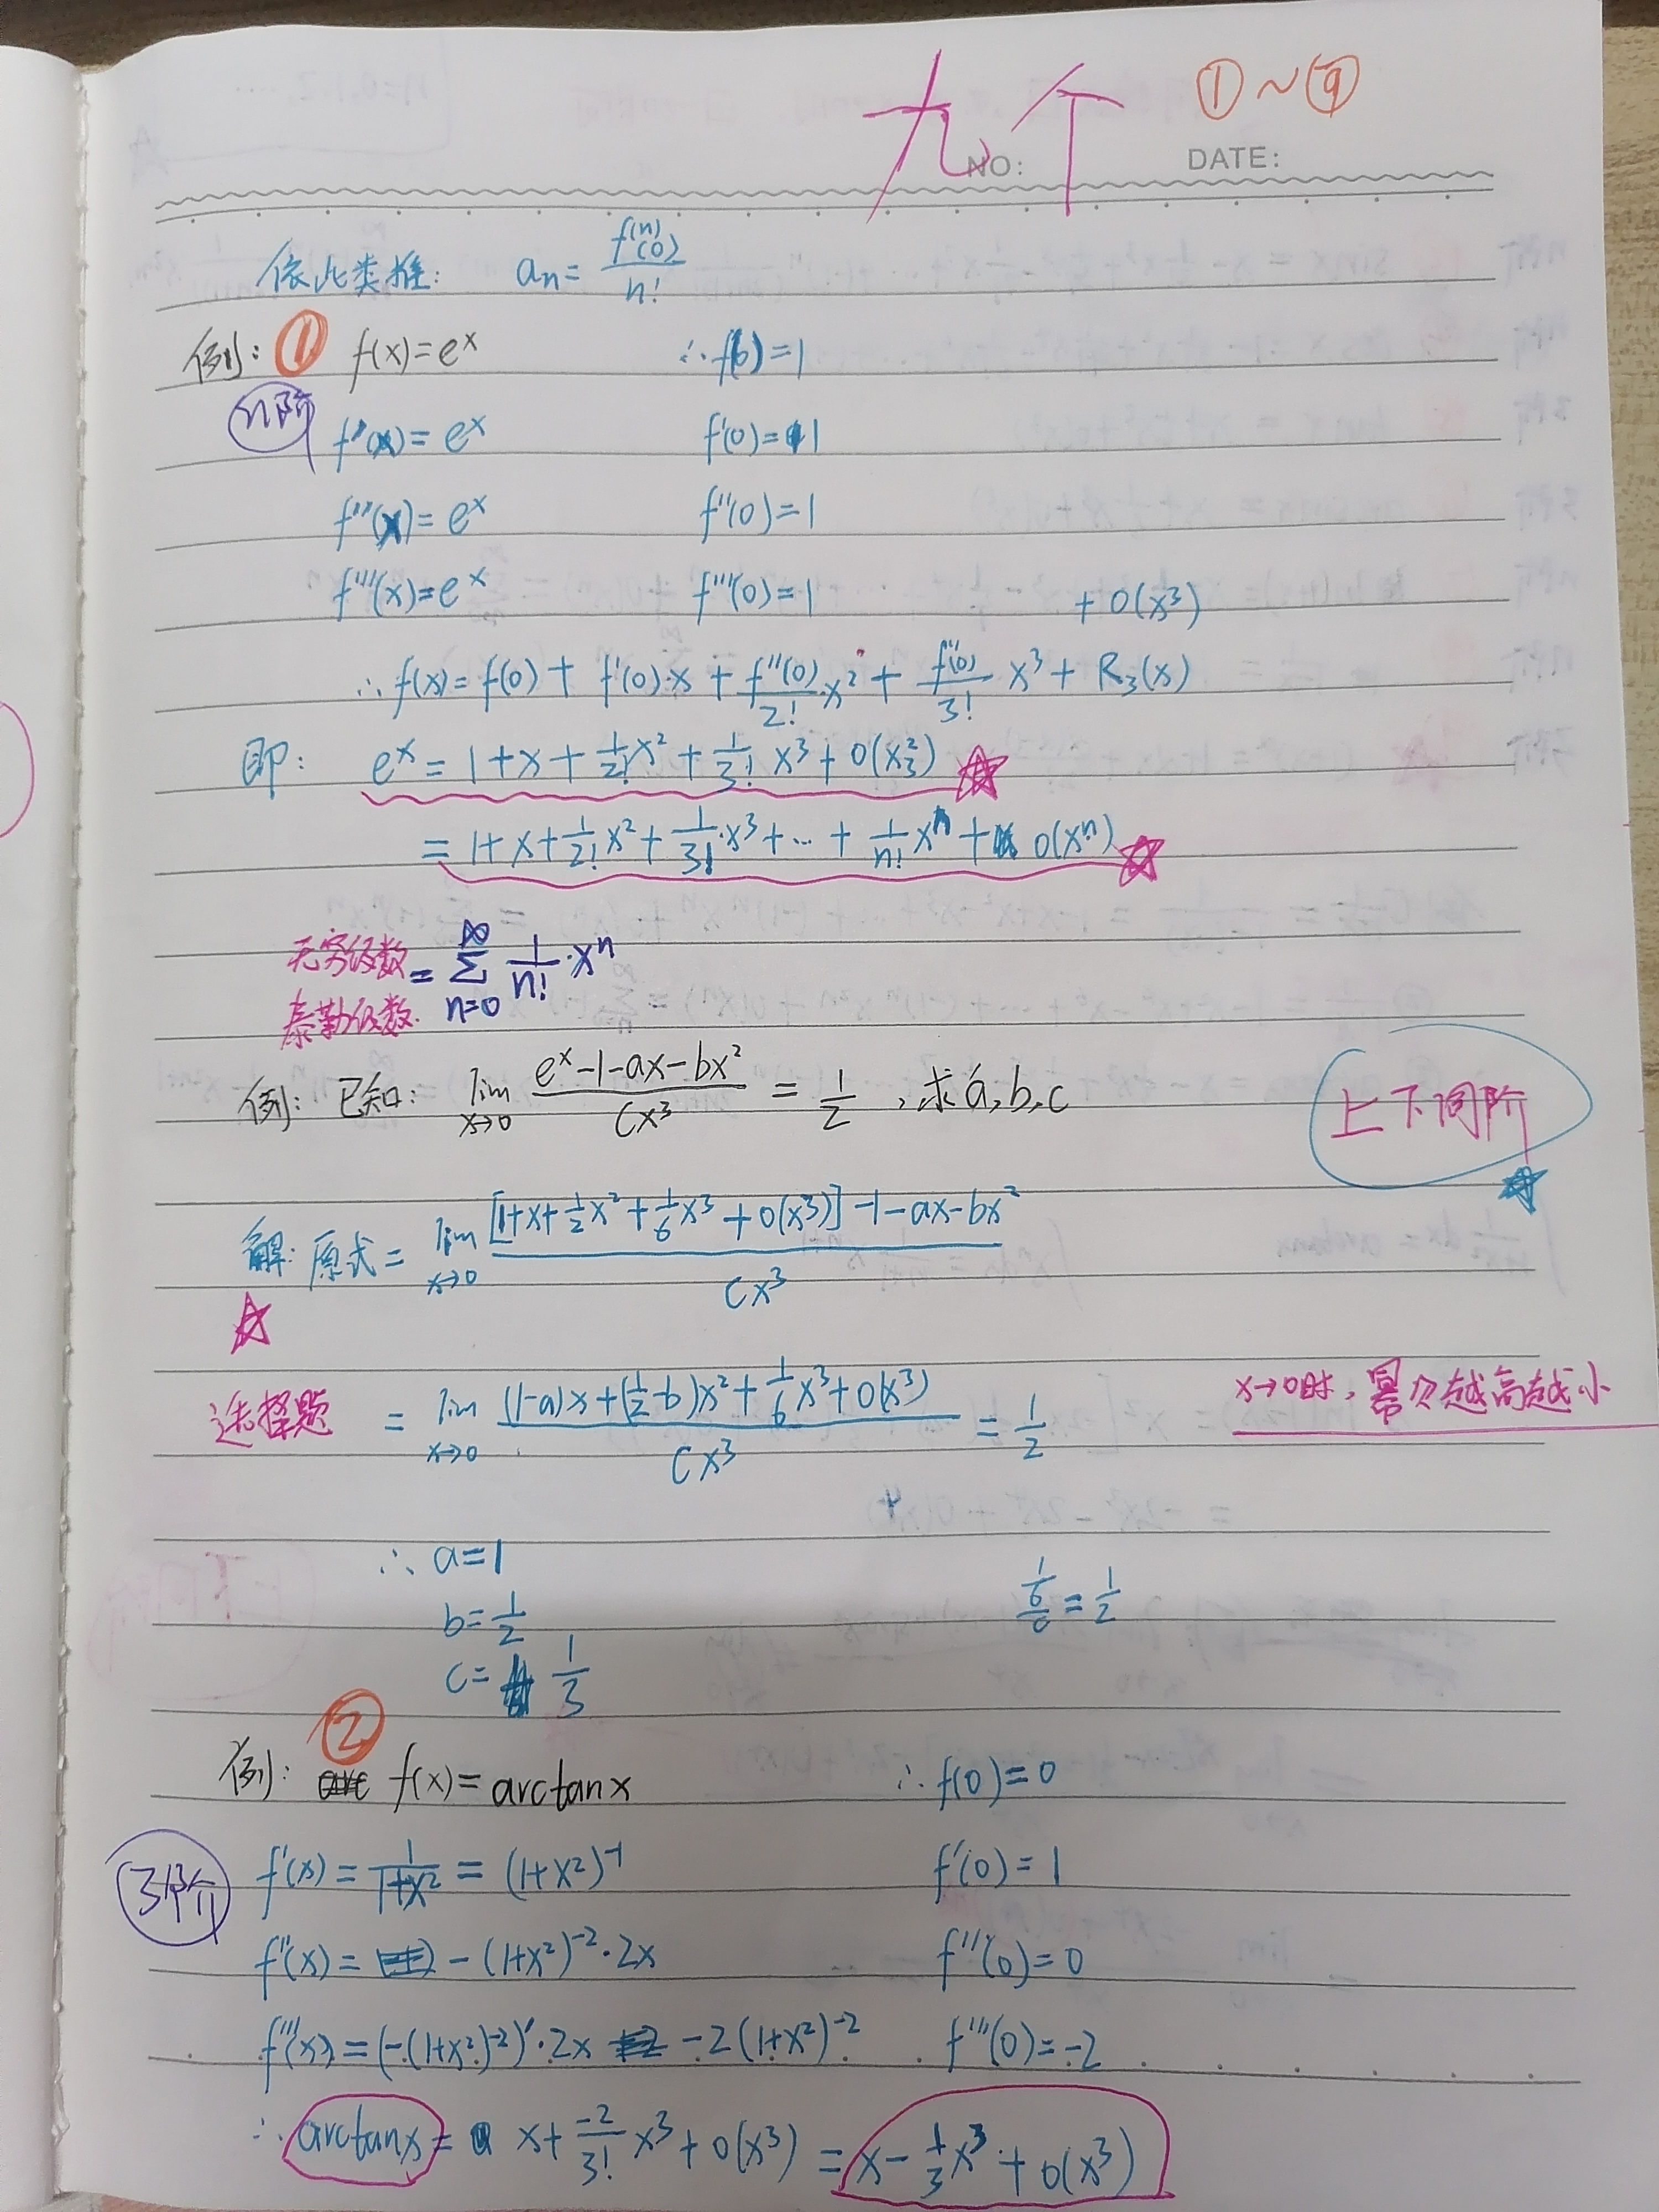 九个 ①~⑨
NO: DATE:
依此类推: aₙ = f⁽ⁿ⁾(0)/n!
例: ① f(x)=eˣ ∴f(0)=1
n阶 f'(x)=eˣ f'(0)=1
f''(x)=eˣ f''(0)=1
f'''(x)=eˣ f'''(0)=1 +o(x³)
∴f(x)=f(0)+f'(0)·x+f''(0)/2!·x²+f'''(0)/3! x³+R₃(x)
即: eˣ=1+x+1/2!x²+1/3! x³+o(x³)
=1+x+1/2!x²+1/3!·x³+…+1/n! xⁿ+o(xⁿ)
无穷级数 = ∑_{n=0}^{∞} 1/n!·xⁿ
泰勒级数.
例: 已知: lim_{x→0} (eˣ-1-ax-bx²)/(cx³) = 1/2 ,求a,b,c
上下同阶
解: 原式= lim_{x→0} ([1+x+1/2x²+1/6x³+o(x³)]-1-ax-bx²)/(cx³)
选择题 = lim_{x→0} ((1-a)x+(1/2-b)x²+1/6x³+o(x³))/(cx³) = 1/2 x→0时,幂次越高越小
∴ a=1
b=1/2 (1/6)/c = 1/2
c= 1/3
例: ② f(x)=arctanx ∴f(0)=0
3阶 f'(x)=1/(1+x²)=(1+x²)⁻¹ f'(0)=1
f''(x)= -(1+x²)⁻²·2x f''(0)=0
f'''(x)=(-(1+x²)⁻²)'·2x -2(1+x²)⁻² f'''(0)=-2
∴arctanx= x+(-2)/3! x³+o(x³) =x-1/3x³+o(x³)